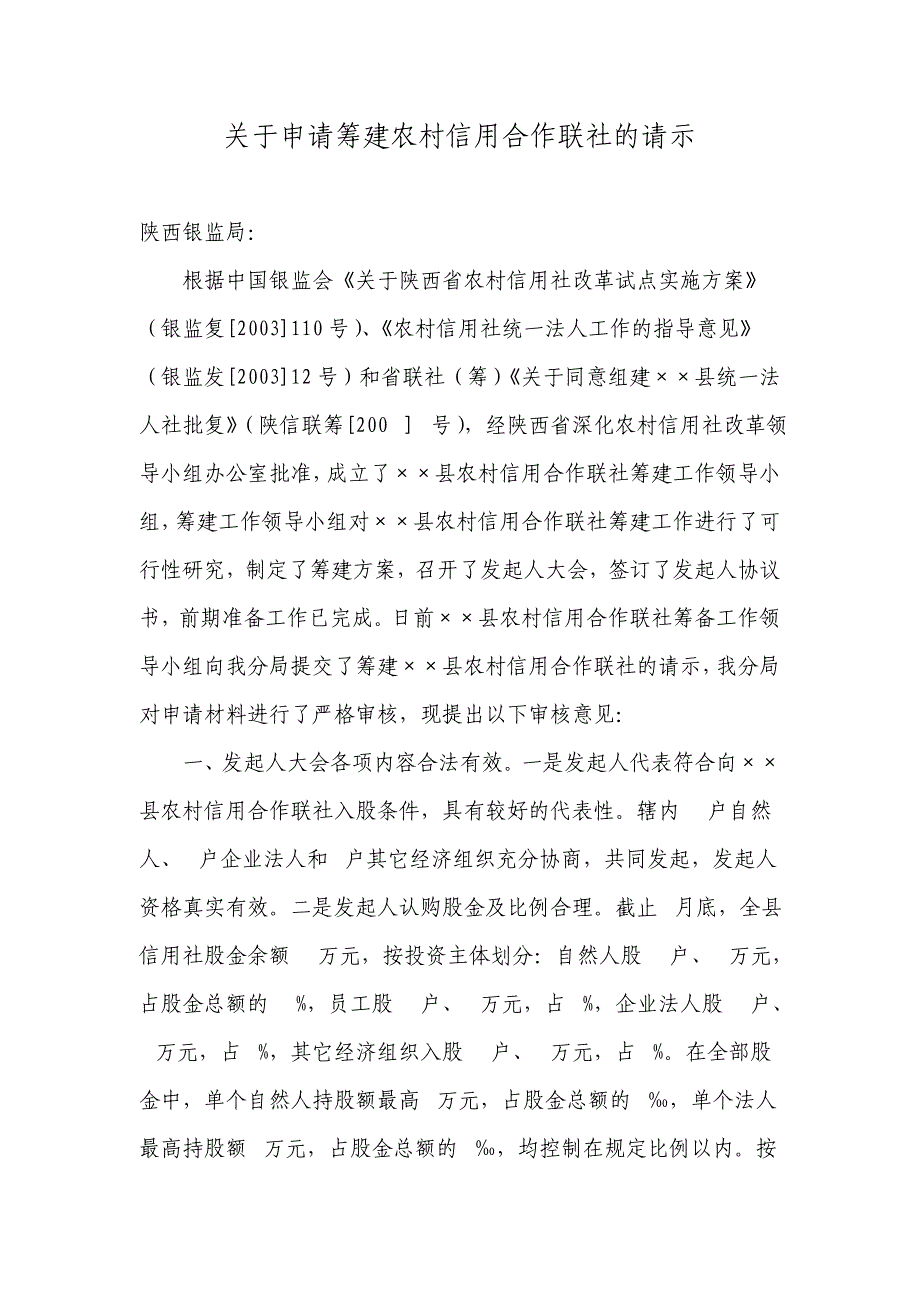 关于申请筹建农村信用合作联社的请示
陕西银监局：
根据中国银监会《关于陕西省农村信用社改革试点实施方案》
（银监复[2003]110 号）、《农村信用社统一法人工作的指导意见》
（银监发[2003]12 号）和省联社（筹）《关于同意组建××县统一法
人社批复》（陕信联筹[200 ] 号），经陕西省深化农村信用社改革领
导小组办公室批准，成立了××县农村信用合作联社筹建工作领导小
组，筹建工作领导小组对××县农村信用合作联社筹建工作进行了可
行性研究，制定了筹建方案，召开了发起人大会，签订了发起人协议
书，前期准备工作已完成。日前××县农村信用合作联社筹备工作领
导小组向我分局提交了筹建××县农村信用合作联社的请示，我分局
对申请材料进行了严格审核，现提出以下审核意见：
一、发起人大会各项内容合法有效。一是发起人代表符合向××
县农村信用合作联社入股条件，具有较好的代表性。辖内 户自然
人、 户企业法人和 户其它经济组织充分协商，共同发起，发起人
资格真实有效。二是发起人认购股金及比例合理。截止 月底，全县
信用社股金余额 万元，按投资主体划分：自然人股 户、 万元，
占股金总额的 %，员工股 户、 万元，占 %，企业法人股 户、
万元，占 %，其它经济组织入股 户、 万元，占 %。在全部股
金中，单个自然人持股额最高 万元，占股金总额的 ‰，单个法人
最高持股额 万元，占股金总额的 ‰，均控制在规定比例以内。按